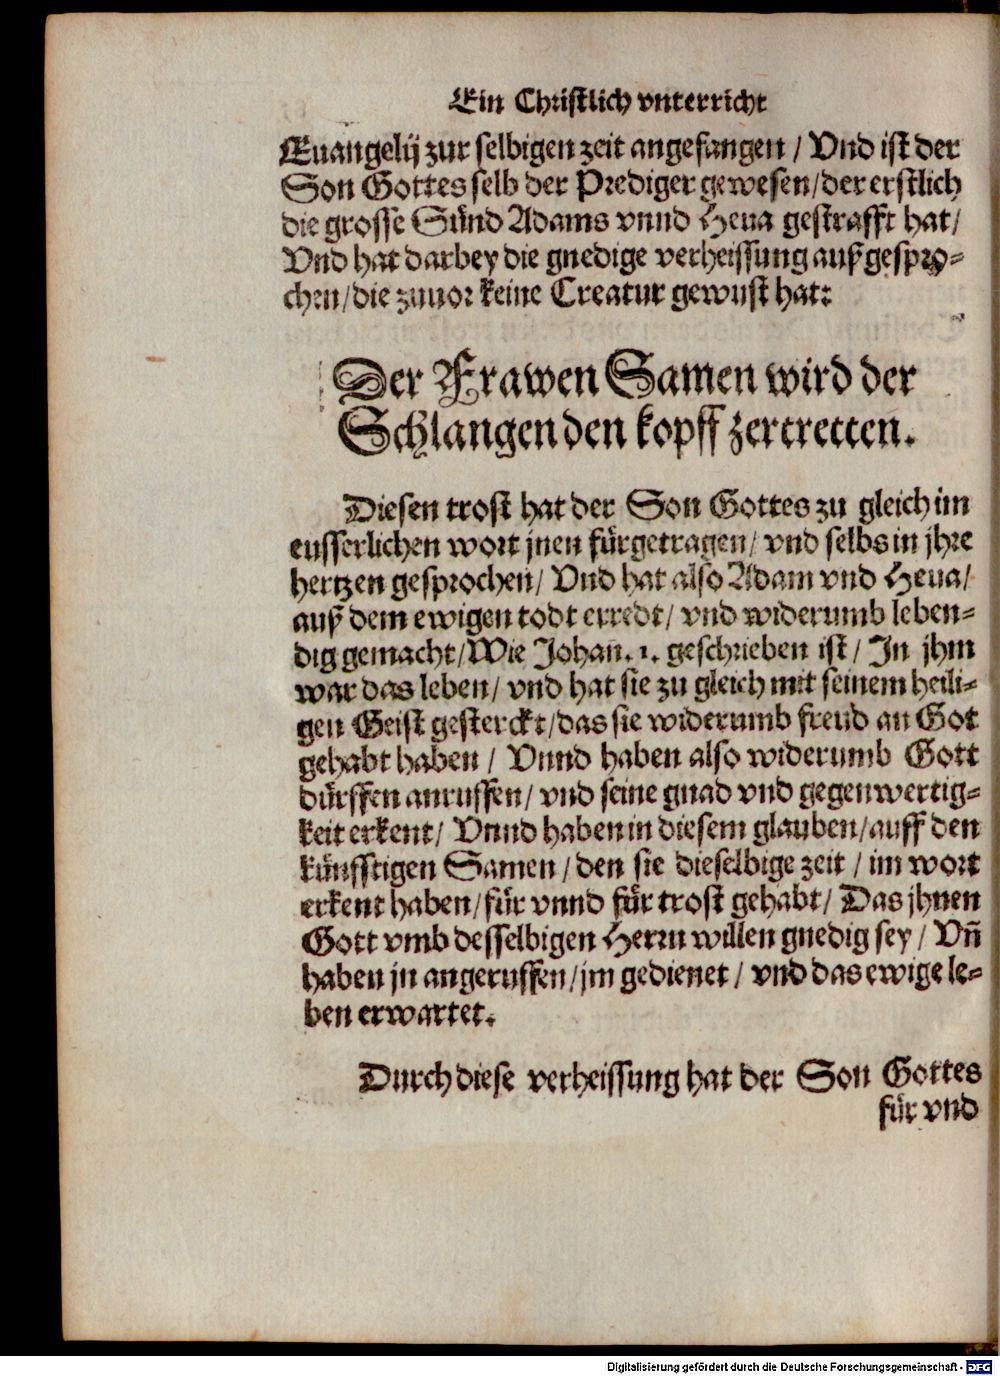 Ein Christlich vnterricht
Euangelij zur selbigen zeit angefangen / Vnd ist der
Son Gottes selb der Prediger gewesen/der erstlich
die grosse Sünd Adams vnnd Heua gestrafft hat/
Vnd hat darbey die gnedige verheissung außgespro-
chen/die zuuor keine Creatur gewust hat:
Der Frawen Samen wird der
Schlangen den kopff zertretten.
Diesen trost hat der Son Gottes zu gleich im
eusserlichen wort jnen fürgetragen/ vnd selbs in jhre
hertzen gesprochen/ Vnd hat also Adam vnd Heua/
auß dem ewigen todt erredt/ vnd widerumb leben-
dig gemacht/Wie Johan. 1. geschrieben ist/ In jhm
war das leben/ vnd hat sie zu gleich mit seinem heili-
gen Geist gesterckt/das sie widerumb freud an Got
gehabt haben / Vnnd haben also widerumb Gott
dürffen anruffen/ vnd seine gnad vnd gegenwertig-
keit erkent/ Vnnd haben in diesem glauben/auff den
künfftigen Samen /den sie dieselbige zeit / im wort
erkent haben/für vnnd für trost gehabt/ Das jhnen
Gott vmb desselbigen Herrn willen gnedig sey / Vñ
haben jn angeruffen/jm gedienet / vnd das ewige le-
ben erwartet.
Durch diese verheissung hat der Son Gottes
für vnd
Digitalisierung gefördert durch die Deutsche Forschungsgemeinschaft - DFG